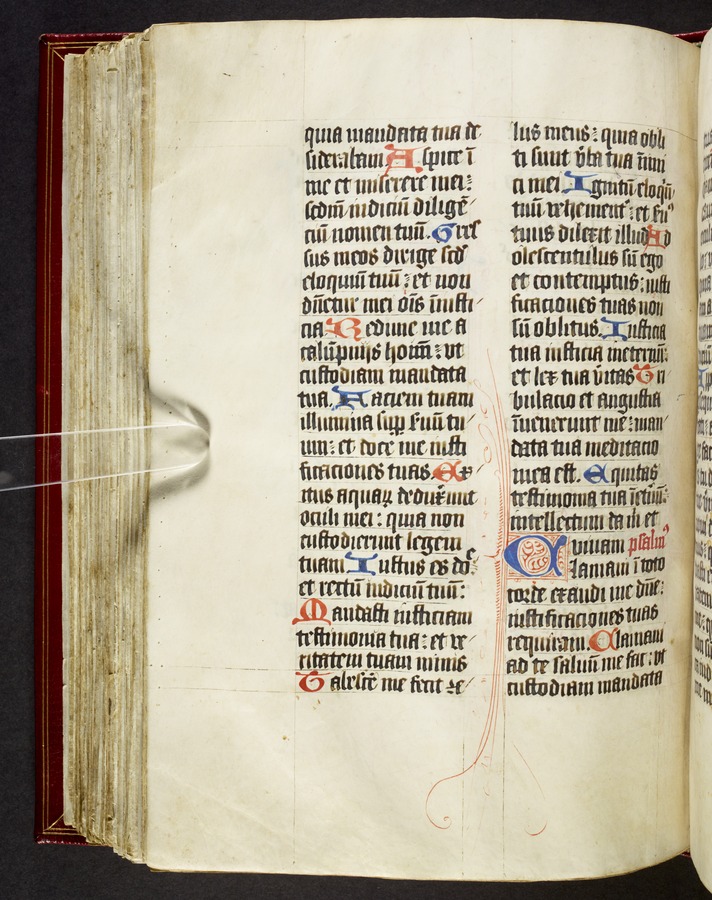 quia mandata tua de
siderabam Aspice ī
me et miserere mei:
scdm̄ iudiciū diligē
ciū nomen tuū. Gres
sus meos dirige scd̄
eloquiū tuū: et non
dn̄etur mei ōīs īiusti
cia Redime me a
calūpnijs hoīm: vt
custodiam mandata
tua. Faciem tuam
illumina sup̄ s̄uū tu
um: et doce me iusti
ficaciones tuas. Ex
itus aquaꝝ deduxerunt
oculi mei: quia non
custodierunt legem
tuam Iustus es do
et rectū iudiciū tuū:
Mandasti iusticiam
testimonia tua: et ve
ritatem tuam nimis
Tabescē me fecit ze
lus meus: quia obli
ti sunt v̄ba tua īimi
ci mei. Ignitū eloqū
tuū vehement᷑: et s̄u᷒
tuus dilexit illud Ad
olescentulus sū ego
et contemptus: iusti
ficaciones tuas non
sū oblitus. Iusticia
tua iusticia ineternū:
et lex tua v̄itas Tri
bulacio et angustia
īuenerunt me: man
data tua meditacio
mea est. Equitas
testimonia tua īet̄nū:
intellectum da m̄ et
viuam psalm᷒
Clamaui ī toto
corde exaudi me dn̄e:
iustificaciones tuas
requiram. Clamaui
ad te saluū me fac: vt
custodiam mandata